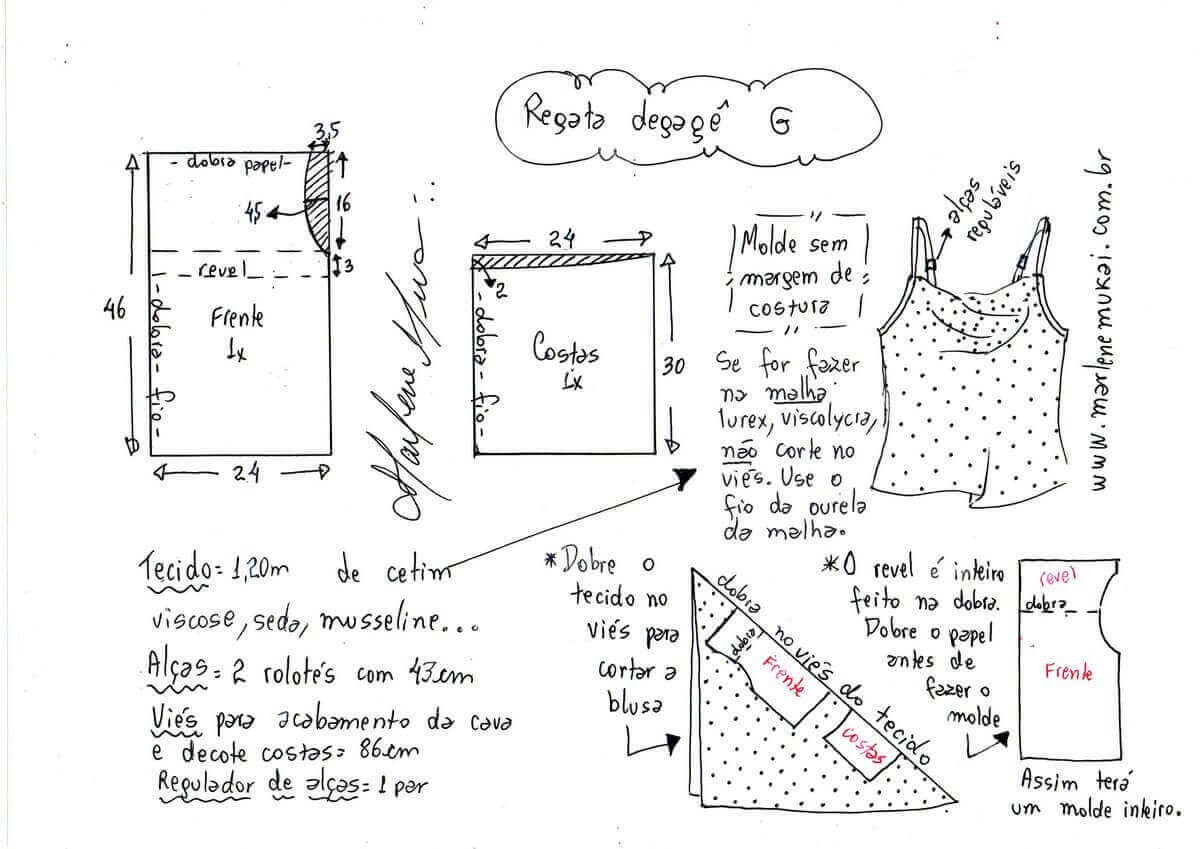 Regata degagê G
3,5
- dobra papel -
16
4,5
3
revel
46
Frente
1x
- dobra - fio -
24
24
2
Costas
1x
- dobra - fio -
30
Molde sem
margem de
costura
alças
reguláveis
www.marlenemukai.com.br
Se for fazer
na malha
lurex, viscolycra,
não corte no
viés. Use o
fio da ourela
da malha.
Tecido = 1,20m de cetim
viscose, seda, musseline...
Alças = 2 rolotés com 43cm
Viés para acabamento da cava
e decote costas = 86cm
Regulador de alças = 1 par
*Dobre o
tecido no
viés para
cortar a
blusa
dobra no viés do tecido
dobra
Frente
costas
*O revel é inteiro
feito na dobra.
Dobre o papel
antes de
fazer o
molde
revel
dobra
Frente
Assim terá
um molde inteiro.